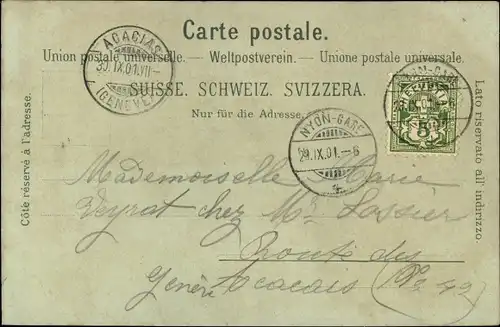 Carte postale.
Union postale universelle. — Weltpostverein. — Unione postale universale.
SUISSE. SCHWEIZ. SVIZZERA.
Nur für die Adresse.
Côté réservé à l'adresse.
Lato riservato all' indirizzo.
ACACIAS
30.IX.01.VII-
(GENÈVE)
NYON-GARE
29.IX.01.-6
NYON-GARE
29.IX.01.-6
5
Mademoiselle Marie
Veyrat chez Mr Lassier
Route des
Genève Acacias (No 42